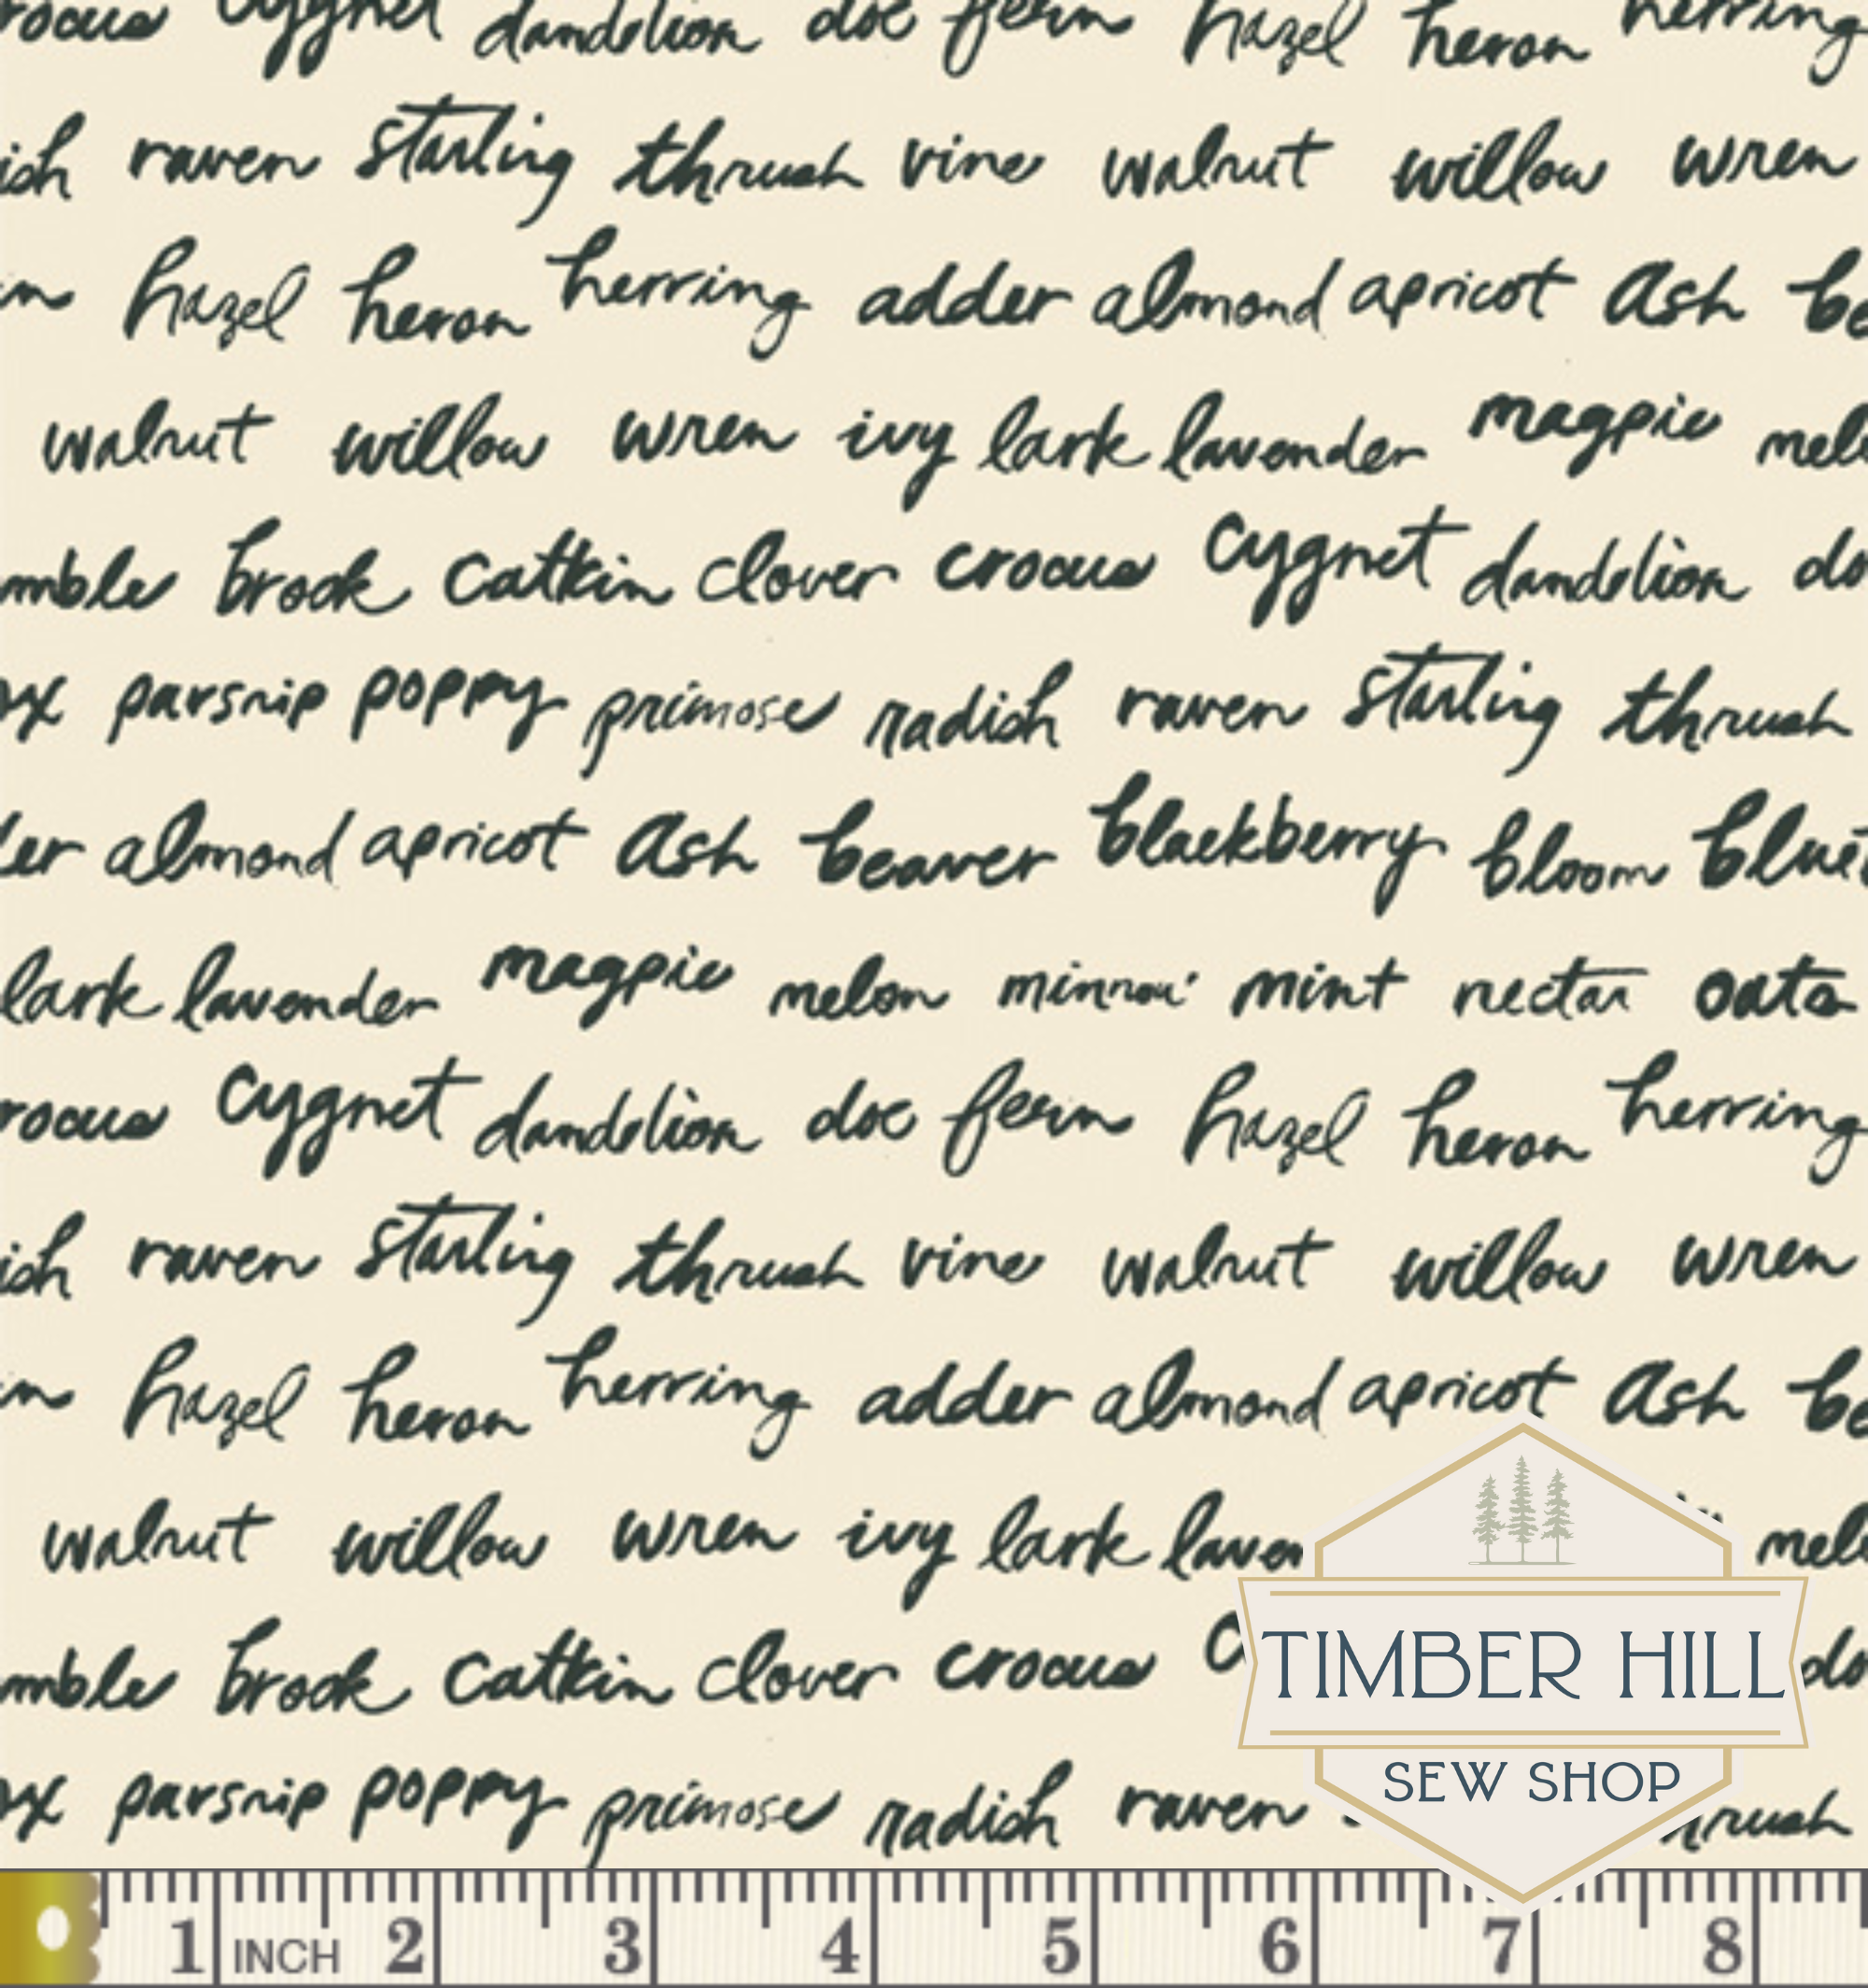 rocus cygnet dandelion doe fern hazel heron herring
ish raven starling thrush vine walnut willow wren
rn hazel heron herring adder almond apricot ash be
walnut willow wren ivy lark lavender magpie mel
mble brook catkin clover crocus cygnet dandelion do
ox parsnip poppy primose radish raven starling thrush
der almond apricot ash beaver blackberry bloom blue
lark lavender magpie melon minnow mint nectar oats
rocus cygnet dandelion doe fern hazel heron herring
ish raven starling thrush vine walnut willow wren
rn hazel heron herring adder almond apricot ash be
walnut willow wren ivy lark laven mel
mble brook catkin clover crocus c do
ox parsnip poppy primose radish raven hrush
TIMBER HILL
SEW SHOP
1 INCH 2 3 4 5 6 7 8